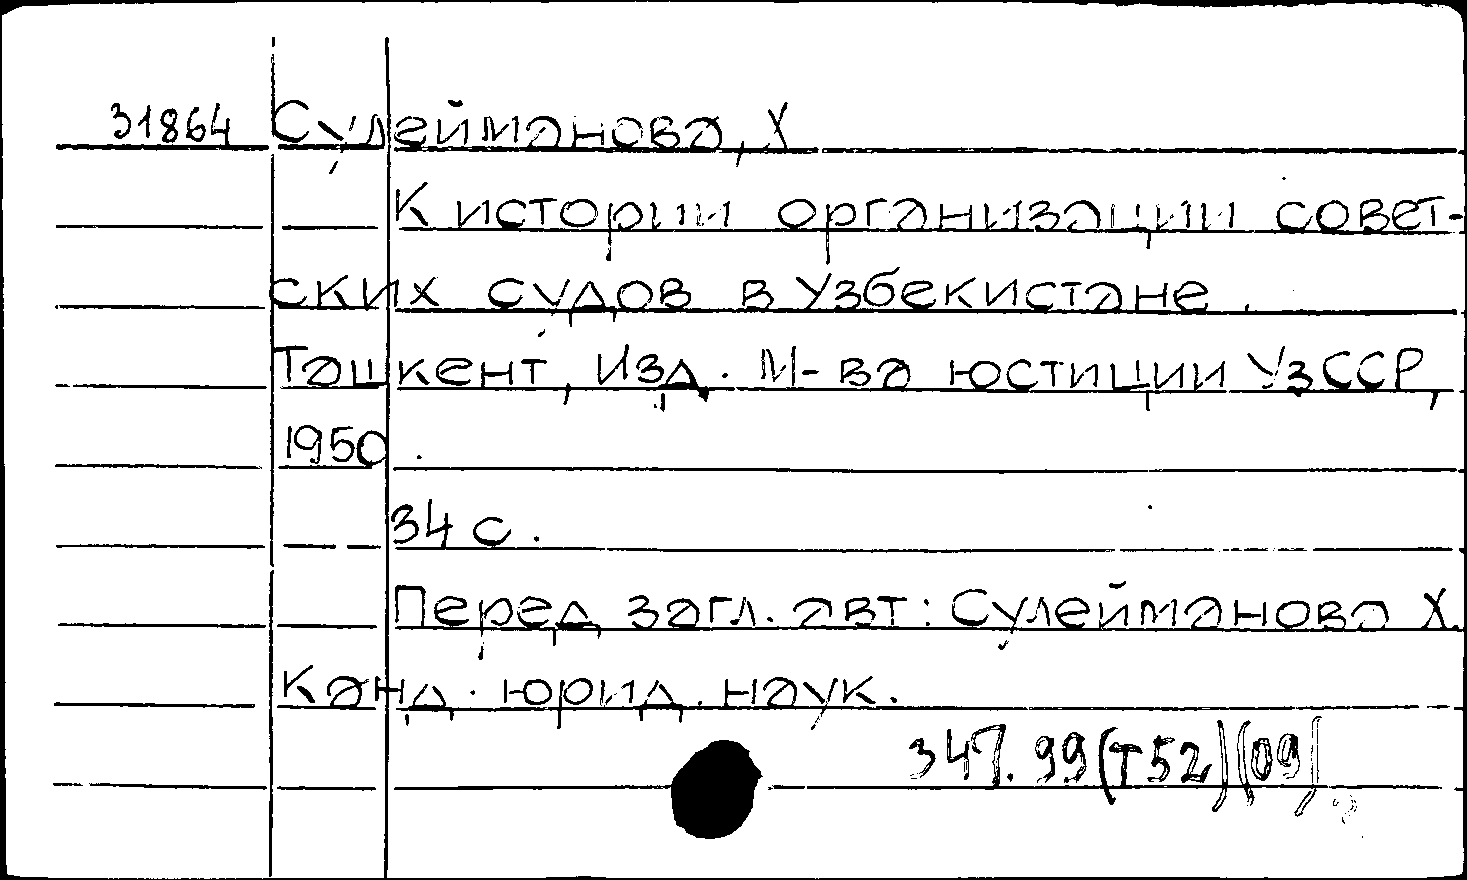 31864 Сулейманова, Х
К истории организации совет-
ских судов в Узбекистане.
Ташкент, Изд. М-ва юстиции УзССР,
1950.
34 с.
Перед загл. авт: Сулейманова Х.
Канд. юрид. наук.
347.99(Т52)(09)